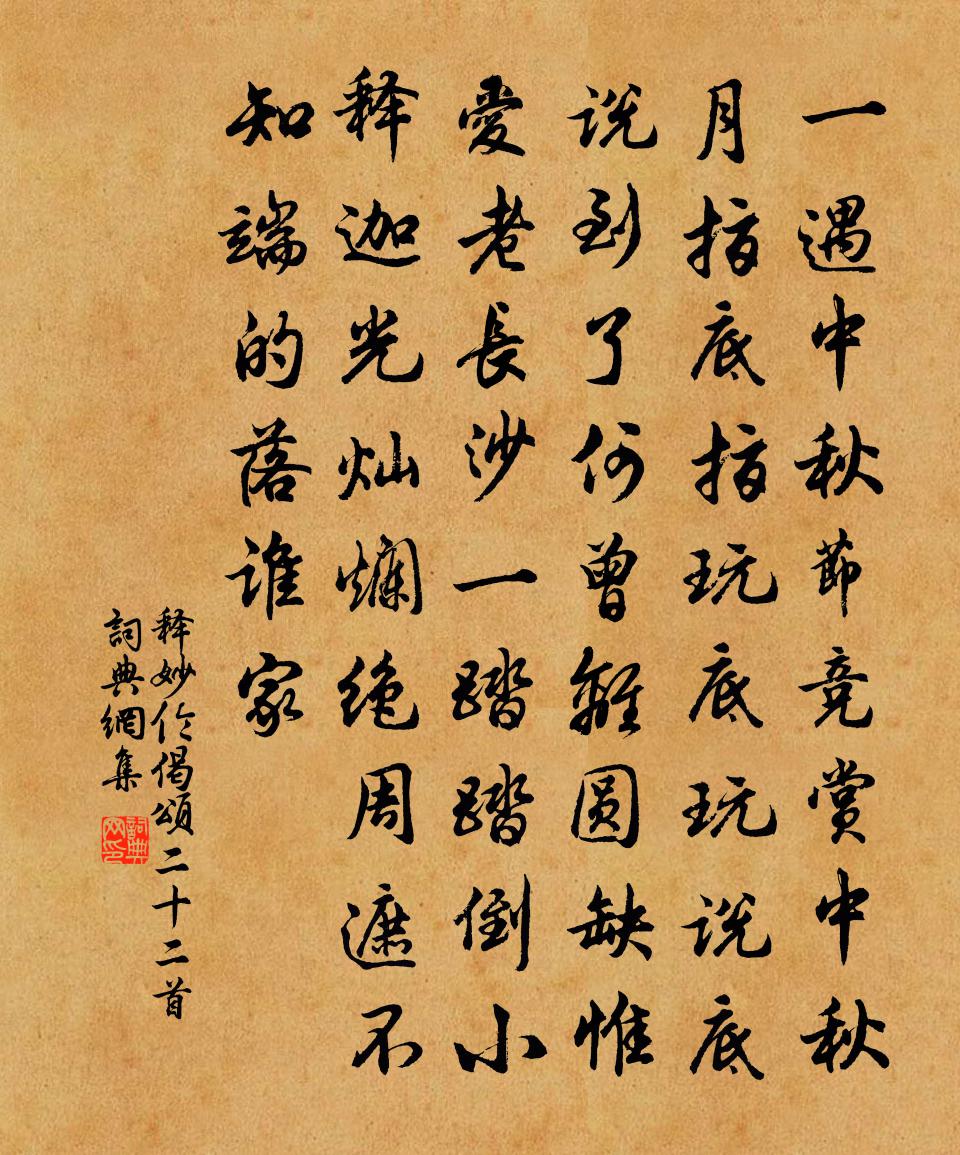 一遇中秋節竞赏中秋
月指底指玩底玩说底
说到了何曾離圆缺惟
愛老長沙一踏踏倒小
释迦光灿爛绝周遮不
知端的落谁家
释妙伦偈頌二十二首
詞典網集
詞典
网印